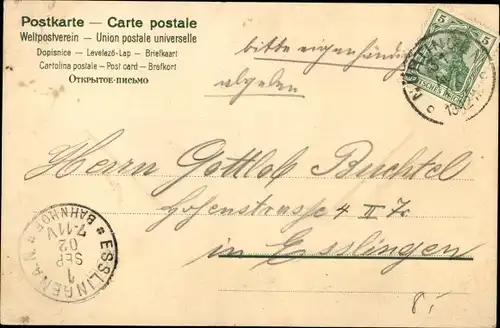 Postkarte — Carte postale
Weltpostverein — Union postale universelle
Dopisnice — Levelező-Lap — Briefkaart
Cartolina postale — Post card — Brefkort
Открытое письмо
bitte eigenhändig
abgeben
5 5
NÜRTINGEN
Deutsches Reich
Herrn Gottlob Buchtel
Hohenstrasse 4 II
in Esslingen
ESSLINGEN A. N.
1
SEP
02
7-11V
* BAHNHOF *